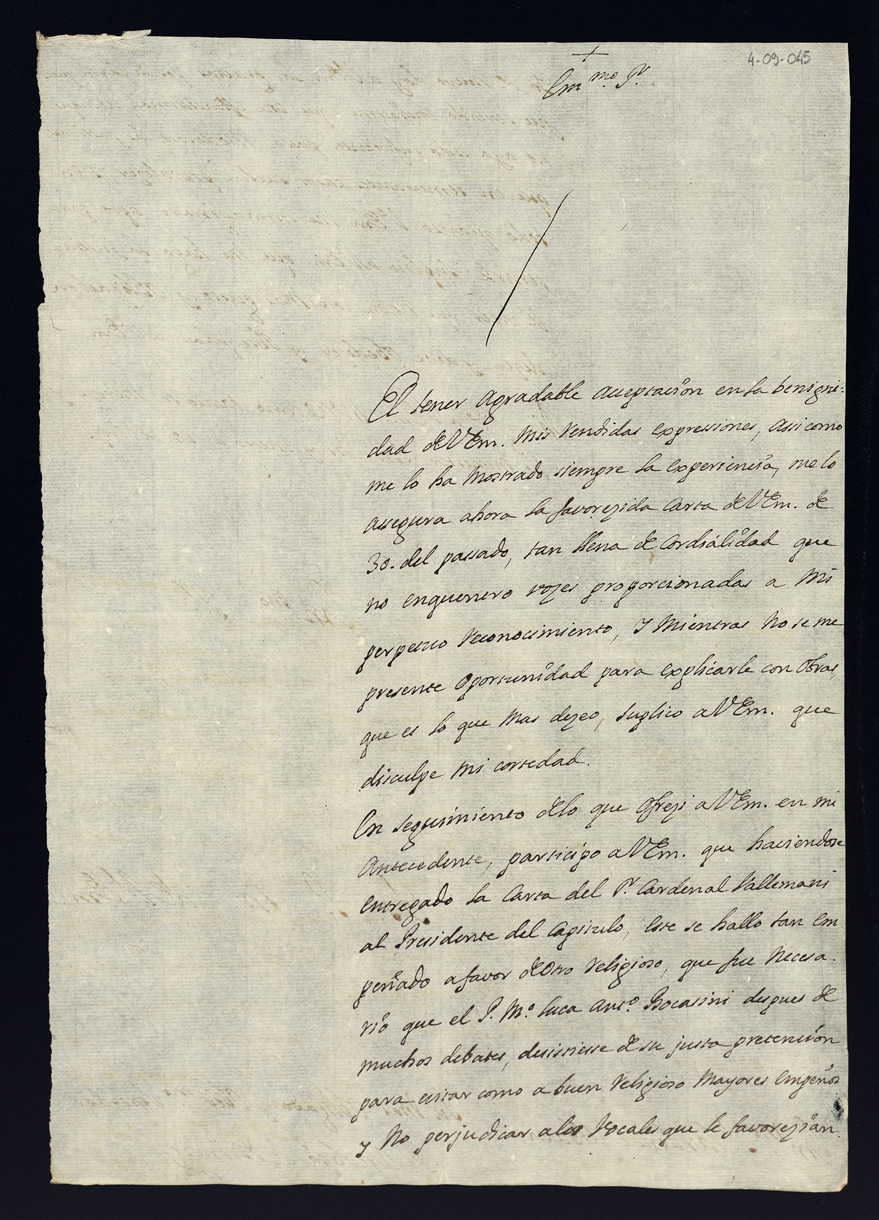 4-09-045
+
Em.mo Sr.
El tener Agradable acceptación en la benigni-
dad de VEm. Mis rendidas expressiones, assi como
me lo ha Mostrado siempre la experiencia, me lo
assegura ahora la favorezida Carta de VEm. de
30. del passado, tan llena de Cordialidad que
no enquentro vozes proporcionadas a Mi
perpetuo reconocimiento, y Mientras No se me
presente Oportunidad para explicarle con Obras,
que es lo que Mas dezeo, suplico a VEm. que
disculpe Mi cortedad.
En seguimiento de lo que Ofrezi a VEm. en mi
Antecedente, participo a VEm. que haciendose
entregado la Carta del Sr. Cardenal Vallemani
al Presidente del Capitulo, este se hallo tan em
peñado a favor de Otro religioso, que fue Necesa-
rio que el P. Mo. Luca Anto. Bocasini despues de
muchos debates, desistiesse de su justa pretencion
para evitar como a buen religioso Mayores Empeños
y No perjudicar a los Vocales que le favorezian.